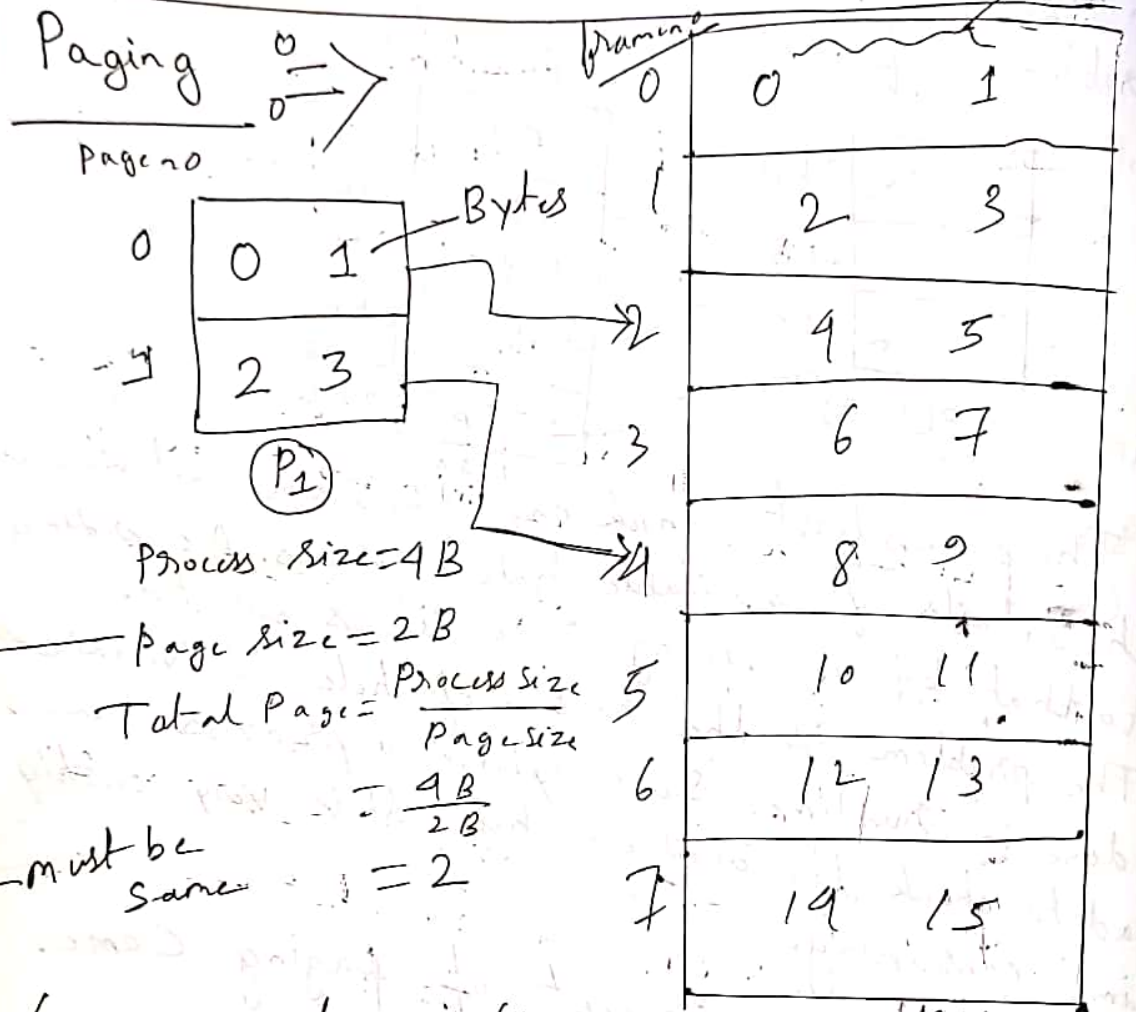 Paging
Page no
0
0 1
Bytes
1
2 3
P1
Process size = 4B
Page size = 2B
Total Page = Process size
Page size
= 4B
2B
= 2
must be
same
0
0 1
1
2 3
2
4 5
3
6 7
4
8 9
5
10 11
6
12 13
7
14 15